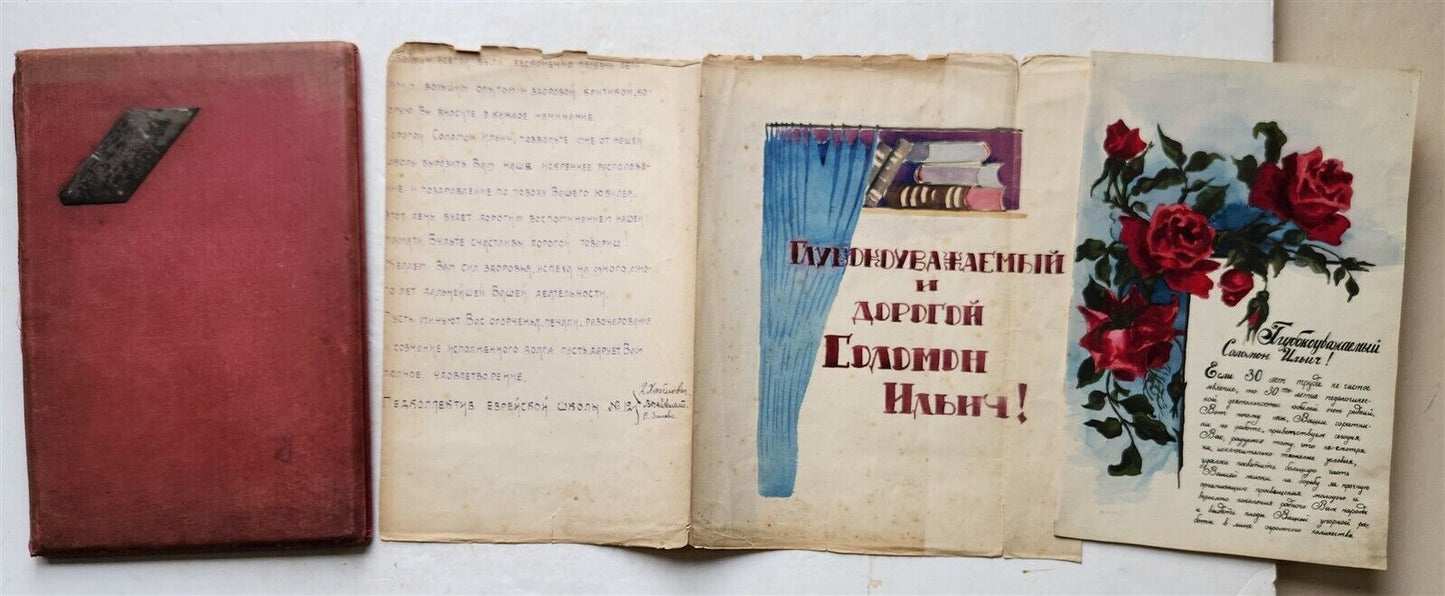 всегда были бесконечно полезны
большим опытом и здоровой критикой, ко-
Вы вносите в каждое начинание
Дорогой Соломон Ильич, позвольте мне от нашей
выразить Вам наше искреннее расположе-
ние и поздравление по поводу Вашего юбилея.
Этот день будет дорогим воспоминанием нашей
памяти. Будьте счастливы дорогой товарищ!
Желаем Вам сил здоровья, успеха на много, мно-
го лет дальнейшей Вашей деятельности.
Пусть минуют Вас огорченья, печали, разочарования
сознание исполненного долга пусть дарует Вам
полное удовлетворение.
Педколлектив еврейской школы № 12
Глубокоуважаемый
и
дорогой
Соломон
Ильич!
Глубокоуважаемый
Соломон Ильич!
Если 30 лет труда не частое
явление, то 30-тие педагогичес-
кой деятельности юбилей еще редкий.
Вот почему мы, Ваши соратни-
ки по работе, приветствуем сегодня
Вас, радуемся тому, что не-смотря
на исключительно тяжелые условия,
удалось посвятить большую часть
Вашей жизни на борьбу за прочную
организацию просвещения молодого и
взрослого поколения родного Вам народа
и видеть плоды Вашей упорной ра-
боты в лице огромного количества